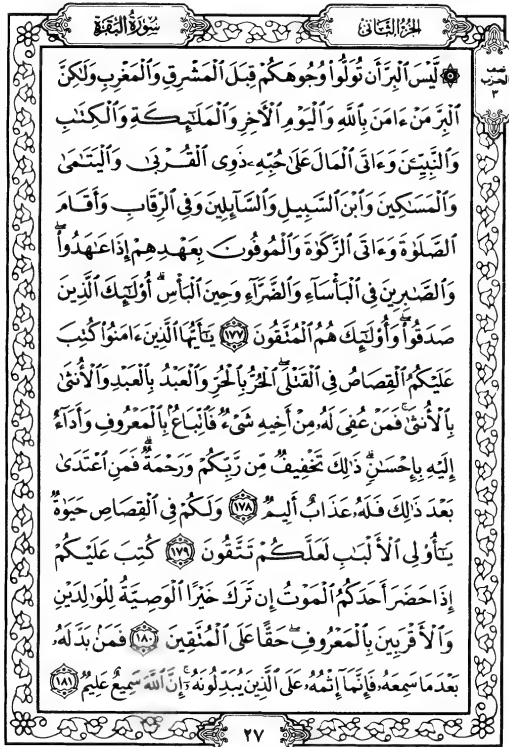 سُورَةُ البَقَرَةِ
الجُزْءُ الثَّانِى
نصف
الحزب
٣
۞ لَّيْسَ ٱلْبِرَّ أَن تُوَلُّوا۟ وُجُوهَكُمْ قِبَلَ ٱلْمَشْرِقِ وَٱلْمَغْرِبِ وَلَٰكِنَّ
ٱلْبِرَّ مَنْ ءَامَنَ بِٱللَّهِ وَٱلْيَوْمِ ٱلْءَاخِرِ وَٱلْمَلَٰٓئِكَةِ وَٱلْكِتَٰبِ
وَٱلنَّبِيِّۦنَ وَءَاتَى ٱلْمَالَ عَلَىٰ حُبِّهِۦ ذَوِى ٱلْقُرْبَىٰ وَٱلْيَتَٰمَىٰ
وَٱلْمَسَٰكِينَ وَٱبْنَ ٱلسَّبِيلِ وَٱلسَّآئِلِينَ وَفِى ٱلرِّقَابِ وَأَقَامَ
ٱلصَّلَوٰةَ وَءَاتَى ٱلزَّكَوٰةَ وَٱلْمُوفُونَ بِعَهْدِهِمْ إِذَا عَٰهَدُوا۟ ۖ
وَٱلصَّٰبِرِينَ فِى ٱلْبَأْسَآءِ وَٱلضَّرَّآءِ وَحِينَ ٱلْبَأْسِ ۗ أُو۟لَٰٓئِكَ ٱلَّذِينَ
صَدَقُوا۟ ۖ وَأُو۟لَٰٓئِكَ هُمُ ٱلْمُتَّقُونَ ١٧٧ يَٰٓأَيُّهَا ٱلَّذِينَ ءَامَنُوا۟ كُتِبَ
عَلَيْكُمُ ٱلْقِصَاصُ فِى ٱلْقَتْلَى ۖ ٱلْحُرُّ بِٱلْحُرِّ وَٱلْعَبْدُ بِٱلْعَبْدِ وَٱلْأُنثَىٰ
بِٱلْأُنثَىٰ ۚ فَمَنْ عُفِىَ لَهُۥ مِنْ أَخِيهِ شَىْءٌ فَٱتِّبَاعٌۢ بِٱلْمَعْرُوفِ وَأَدَآءٌ
إِلَيْهِ بِإِحْسَٰنٍ ۗ ذَٰلِكَ تَخْفِيفٌ مِّن رَّبِّكُمْ وَرَحْمَةٌ ۗ فَمَنِ ٱعْتَدَىٰ
بَعْدَ ذَٰلِكَ فَلَهُۥ عَذَابٌ أَلِيمٌ ١٧٨ وَلَكُمْ فِى ٱلْقِصَاصِ حَيَوٰةٌ
يَٰٓأُو۟لِى ٱلْأَلْبَٰبِ لَعَلَّكُمْ تَتَّقُونَ ١٧٩ كُتِبَ عَلَيْكُمْ
إِذَا حَضَرَ أَحَدَكُمُ ٱلْمَوْتُ إِن تَرَكَ خَيْرًا ٱلْوَصِيَّةُ لِلْوَٰلِدَيْنِ
وَٱلْأَقْرَبِينَ بِٱلْمَعْرُوفِ ۖ حَقًّا عَلَى ٱلْمُتَّقِينَ ١٨٠ فَمَنۢ بَدَّلَهُۥ
بَعْدَ مَا سَمِعَهُۥ فَإِنَّمَآ إِثْمُهُۥ عَلَى ٱلَّذِينَ يُبَدِّلُونَهُۥٓ ۚ إِنَّ ٱللَّهَ سَمِيعٌ عَلِيمٌ ١٨١
٢٧